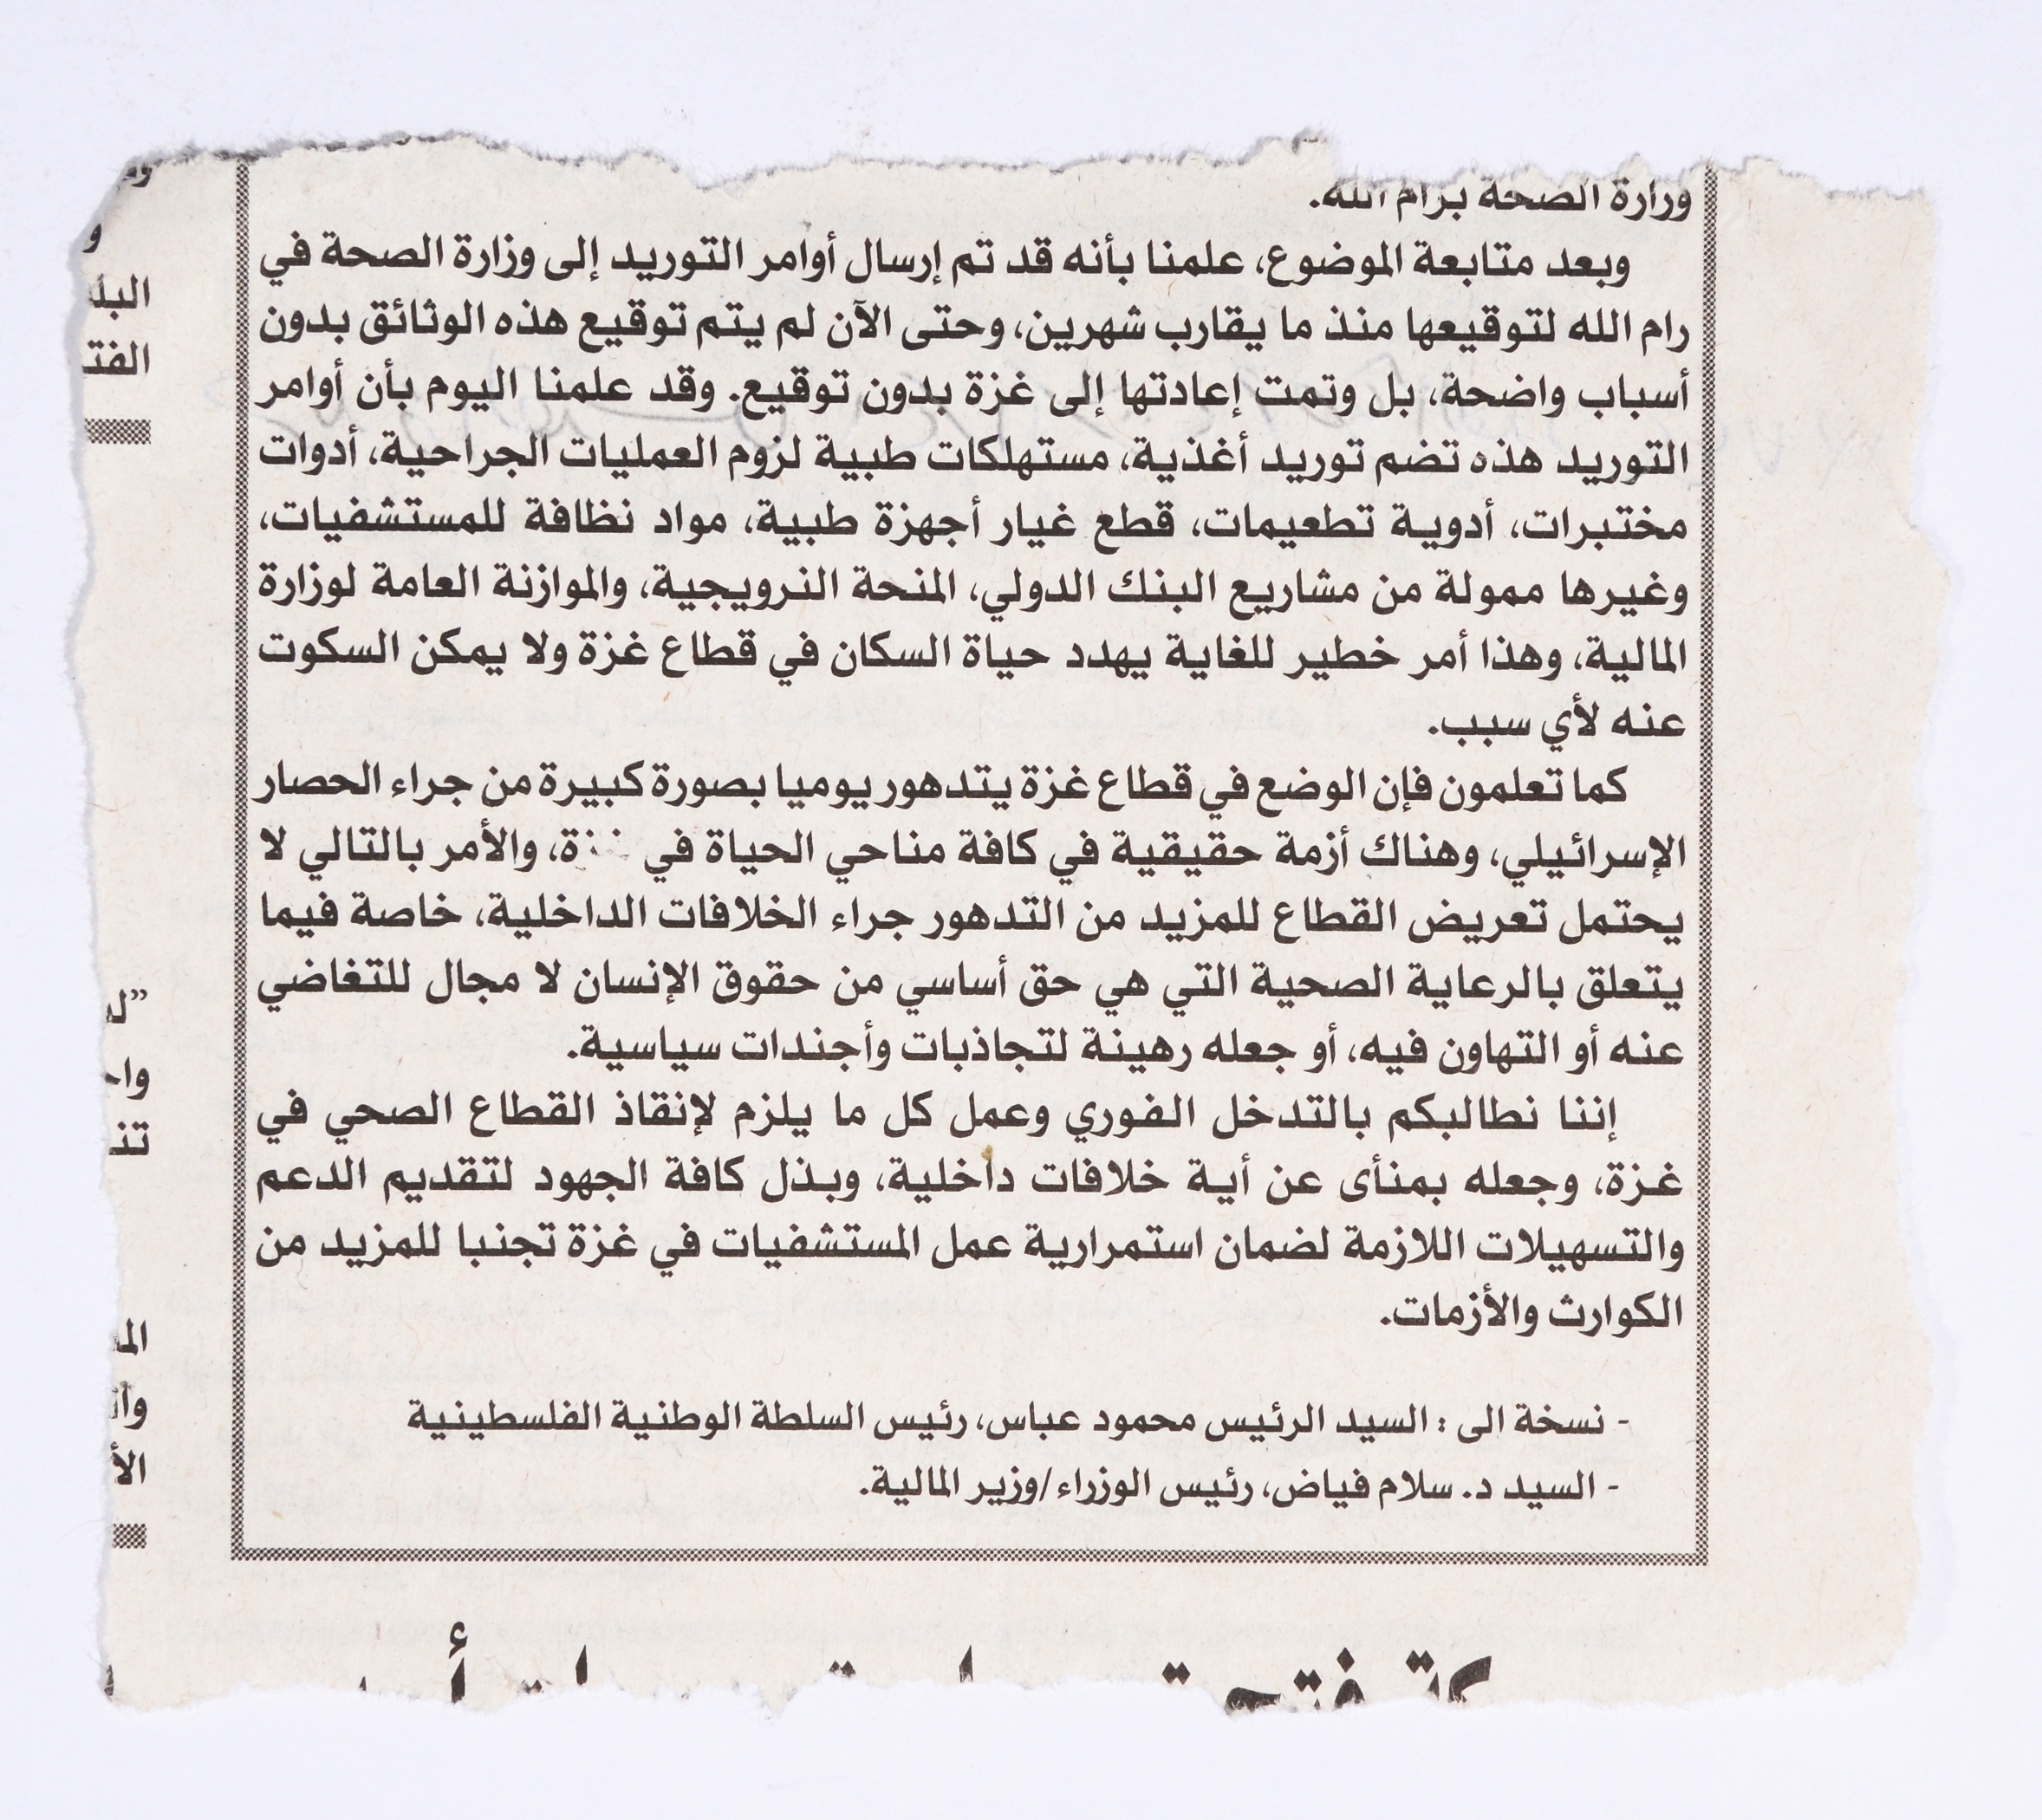 وزارة الصحة برام الله.
وبعد متابعة الموضوع، علمنا بأنه قد تم إرسال أوامر التوريد إلى وزارة الصحة في
رام الله لتوقيعها منذ ما يقارب شهرين، وحتى الآن لم يتم توقيع هذه الوثائق بدون
أسباب واضحة، بل وتمت إعادتها إلى غزة بدون توقيع. وقد علمنا اليوم بأن أوامر
التوريد هذه تضم توريد أغذية، مستهلكات طبية لزوم العمليات الجراحية، أدوات
مختبرات، أدوية تطعيمات، قطع غيار أجهزة طبية، مواد نظافة للمستشفيات،
وغيرها ممولة من مشاريع البنك الدولي، المنحة النرويجية، والموازنة العامة لوزارة
المالية، وهذا أمر خطير للغاية يهدد حياة السكان في قطاع غزة ولا يمكن السكوت
عنه لأي سبب.
كما تعلمون فإن الوضع في قطاع غزة يتدهور يوميا بصورة كبيرة من جراء الحصار
الإسرائيلي، وهناك أزمة حقيقية في كافة مناحي الحياة في والأمر بالتالي لا
يحتمل تعريض القطاع للمزيد من التدهور جراء الخلافات الداخلية، خاصة فيما
يتعلق بالرعاية الصحية التي هي حق أساسي من حقوق الإنسان لا مجال للتغاضي
عنه أو التهاون فيه، أو جعله رهينة لتجاذبات وأجندات سياسية.
إننا نطالبكم بالتدخل الفوري وعمل كل ما يلزم لإنقاذ القطاع الصحي في
غزة، وجعله بمنأى عن أية خلافات داخلية، وبذل كافة الجهود لتقديم الدعم
والتسهيلات اللازمة لضمان استمرارية عمل المستشفيات في غزة تجنبا للمزيد من
الكوارث والأزمات.
- نسخة الى : السيد الرئيس محمود عباس، رئيس السلطة الوطنية الفلسطينية
- السيد د. سلام فياض، رئيس الوزراء/وزير المالية.